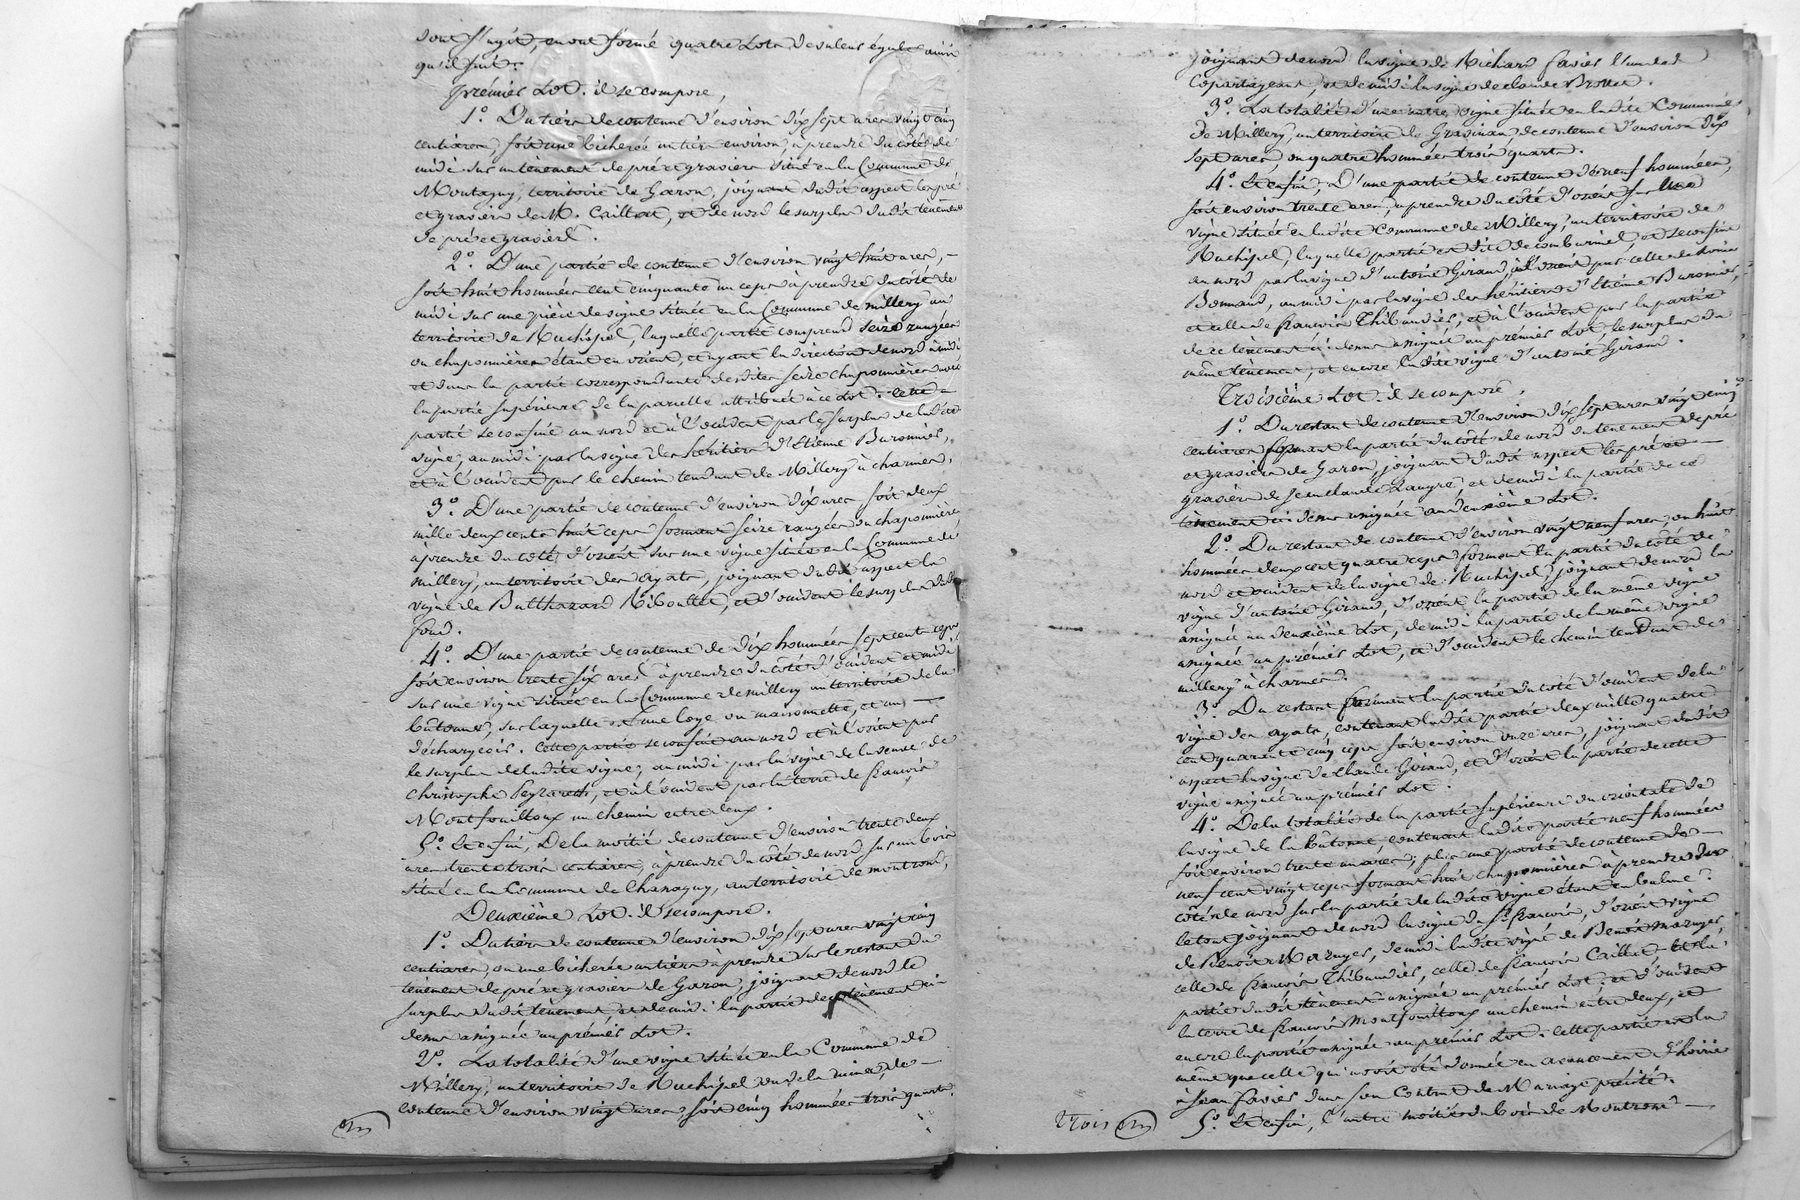 dont s'agit, en ont formé quatre Lots de valeur égale ainsi
qu'il suit.
Prémier Lot. il se compose,
1.° Du tiers de contenue d'environ dix sept ares vingt cinq
centiares, soit une bicherée un tiers environ, à prendre du côté de
midi sur un tenement de pré et gravière situé en la Commune de
Montagny, territoire de Garon, joignant dudit aspect les pré
et gravière de M. Caillot, et de nord le surplus dudit tenement
de pré et gravière.
2.° D'une partie de contenue d'environ vingt huit ares,
soit huit hommées cent cinquante un ceps à prendre du côté de
midi sur une pièce de vigne située en la Commune de Millery au
territoire de Ruchipel, laquelle partie comprend seize rangées
ou chaponnières étant en orient, et ayant la direction de nord à midi
et dans la partie correspondante desdites seize chaponnières
la partie supérieure de la parcelle attribuée à ce Lot. Cette
partie se confine au nord et à l'occident par le surplus de ladite
vigne, au midi par la vigne des héritiers d'Etienne Baronnier,
et à l'occident par le chemin tendant de Millery à charmes.
3.° D'une partie de contenue d'environ dix ares soit deux
mille deux cents huit ceps formant seize rangées ou chaponnières
à prendre du côté d'orient sur une vigne située en la Commune de
Millery, au territoire des ayats, joignant dudit aspect la
vigne de Balthazard Riboullet, et d'occident le surplus dudit
fond.
4.° D'une partie de contenue de dix hommées sept cent ceps
soit environ trente six ares à prendre du côté d'occident et midi
sur une vigne située en la Commune de Millery au territoire de la
bûtonne, sur laquelle est une loge ou maisonnette, et un
décharçois. Cette partie se confine au nord et à l'orient par
le surplus de ladite vigne, au midi par la vigne de la veuve de
Christophe, et à l'occident par la terre de François
Montfouilloux un chemin entre deux.
5.° Et enfin, De la moitié de contenue d'environ trente deux
ares trente trois centiares, à prendre du côté de nord sur un bois
situé en la Commune de Chassagny, au territoire de montrond,
Deuxième Lot. il se compose.
1.° Du tiers de contenue d'environ dix sept ares vingt cinq
centiares, ou une bicherée un tiers à prendre sur le restant du
tenement de pré et gravière de Garon, joignant de nord le
surplus dudit tenement, et de midi la partie de ce tènement ci-
dessus assignée au prémier Lot.
2.° La totalité d'une vigne située en la Commune de
Millery, au territoire de Ruchipel ou de la mine, de
contenue d'environ vingt ares, soit cinq hommées trois quarts,
joignant de nord la vigne de Richard Favier l'un des
copartageant, et de midi la vigne de claude
3.° La totalité d'une autre vigne située en ladite Commune
de Millery, au territoire de Gravinan, de contenue d'environ dix
sept ares ou quatre hommées trois quarts.
4.° Et enfin, D'une partie de contenue de neuf hommées,
soit environ trente ares, à prendre du côté d'orient sur une
vigne située en ladite Commune de Millery, au territoire de
Ruchipel, laquelle partie est dite de comburinel, et se confine
au nord par la vigne d'antoine Giraud, à l'orient par celle de
Bonnand, au midi par la vigne des héritiers d'Etienne Baronnier,
et celle de François Thibaudier, et à l'occident par la partie
de ce tènement ci-dessus assignée au prémier Lot, le surplus du
même tènement, et encore ladite vigne d'antoine Giraud.
Troisième Lot. il se compose,
1.° Du restant de contenue d'environ dix sept ares vingt cinq
centiares formant la partie du côté de nord du tenement de pré
et gravière de Garon, joignant dudit aspect les pré et
gravière de Jean claude, et de midi la partie de ce
tènement ci-dessus assignée au deuxième Lot.
2.° Du restant de contenue d'environ vingt neuf ares, ou huit
hommées deux cent quatre ceps formant la partie du côté de
nord et occident de la vigne de Ruchipel, joignant de nord la
vigne d'antoine Giraud, d'orient la partie de la même vigne
assignée au deuxième Lot, de midi la partie de la même vigne
assignée au prémier Lot, et d'occident le chemin tendant de
Millery à charmes.
3.° Du restant formant la partie du côté d'occident de la
vigne des ayats, contenant ladite partie deux mille quatre
cent quarante cinq ceps soit environ onze ares, joignant dudit
aspect la vigne de Claude Giraud, et d'orient la partie de cette
vigne assignée au prémier Lot.
4.° De la totalité de la partie supérieure ou orientale de
la vigne de la bûtonne, contenant ladite partie neuf hommées
soit environ trente un ares; plus une partie de contenue de
neuf cent vingt ceps formant huit chaponnières à prendre du
côté de nord sur la partie de ladite vigne étant en balme.
le tout joignant de nord la vigne du s.r François, d'orient vigne
de Benoit Mazuyer, de midi ladite vigne de Benoit Mazuyer
celle de François Thibaudier, celle de François Caillot et la
partie dudit tènement assignée au prémier Lot, et d'occident
la terre de François Montfouilloux un chemin entre deux, et
encore la partie assignée au prémier Lot. Cette partie est la
même que celle qui avoit été donnée en avancement d'hoirie
à Jean Favier dans son Contrat de Mariage précité.
5.° Et enfin, L'autre moitié du bois de Montrond
Trois